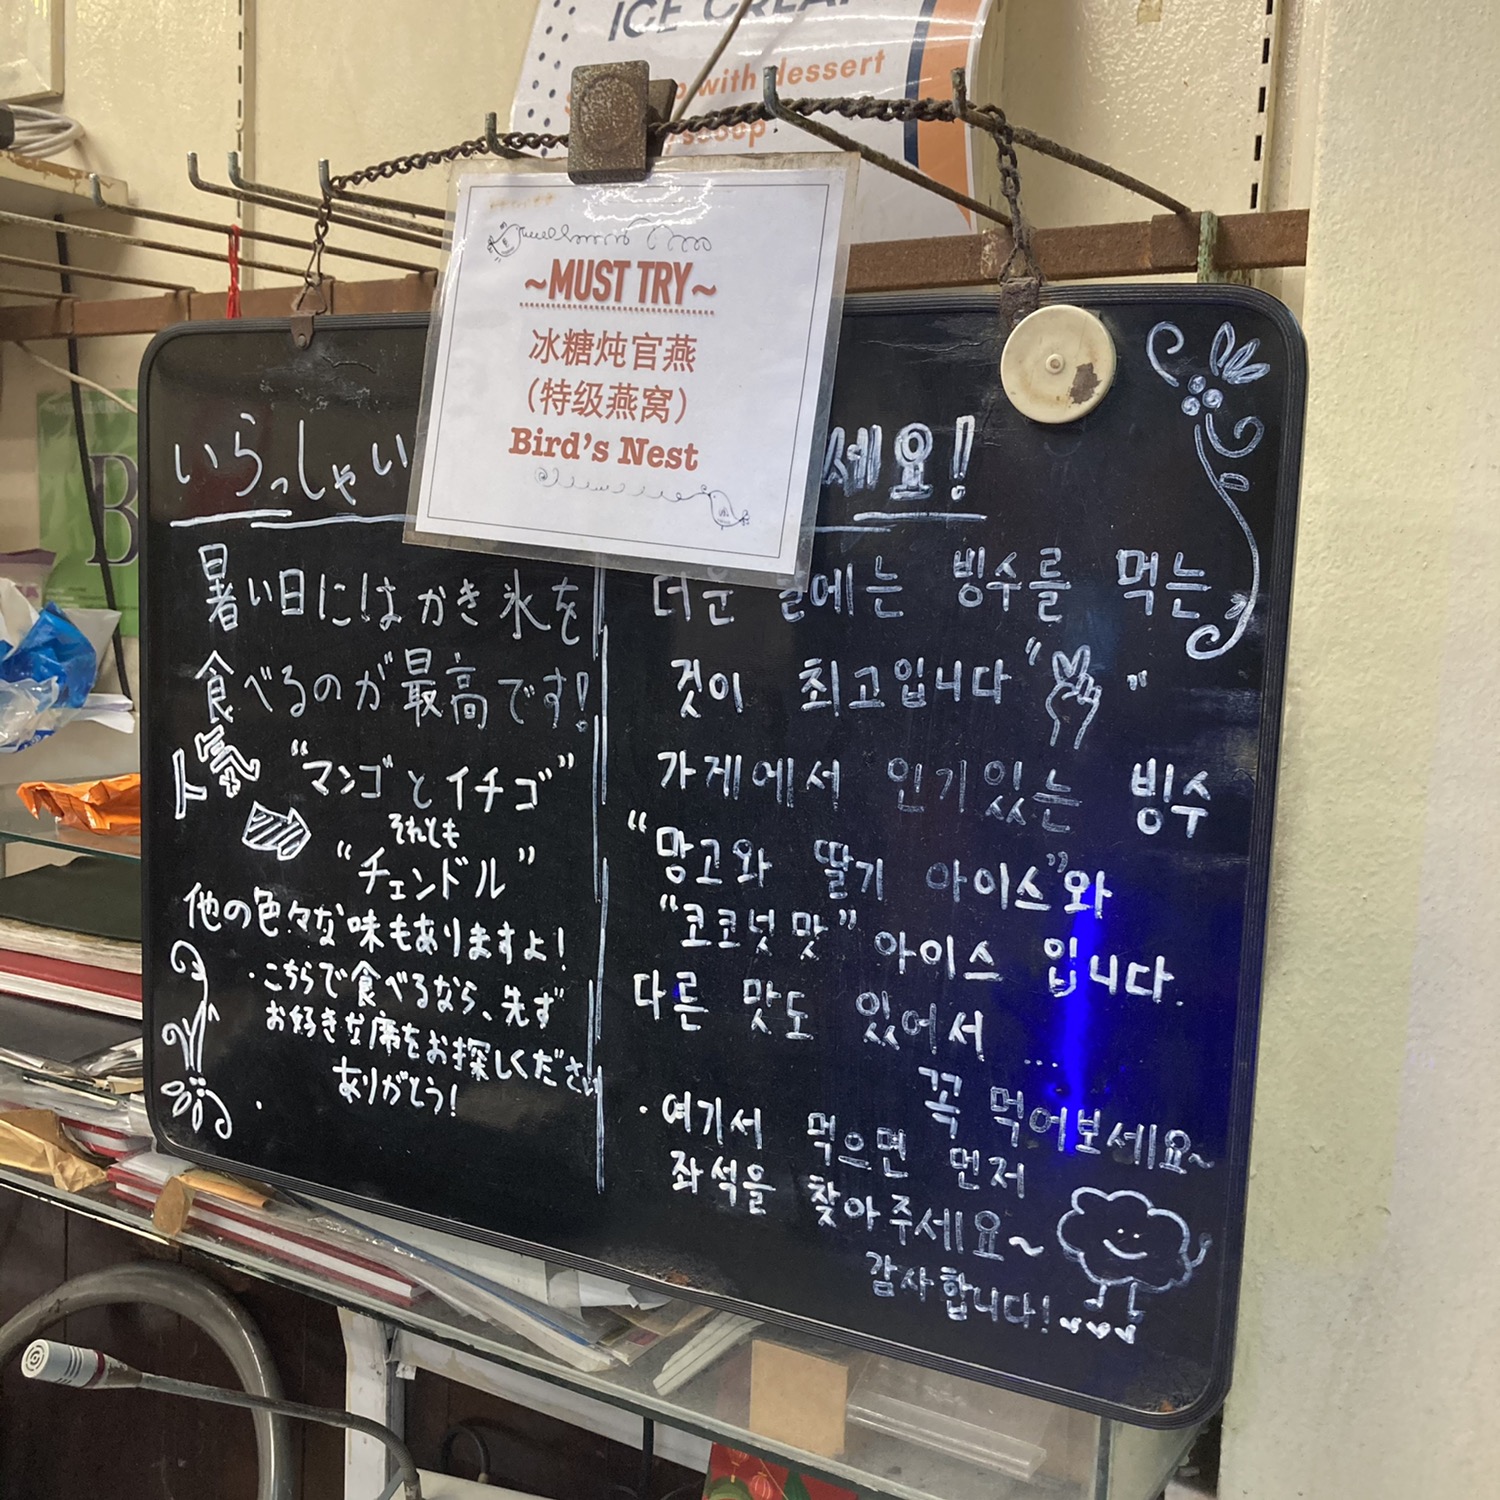 ICE CREAM
with dessert
~MUST TRY~
冰糖炖官燕
(特级燕窝)
Bird's Nest
いらっしゃい
暑い日にはかき氷を
食べるのが最高です!
人気 "マンゴとイチゴ"
それとも
"チェンドル"
他の色々な味もありますよ!
・こちらで食べるなら、先ず
お好きな席をお探しくださ
ありがとう!
세요!
더운 날에는 빙수를 먹는
것이 최고입니다 " "
가게에서 인기있는 빙수
"망고와 딸기 아이스"와
"코코넛 맛" 아이스 입니다.
다른 맛도 있어서 ...
꼭 먹어보세요~
・여기서 먹으면 먼저
좌석을 찾아주세요~
감사합니다!
B